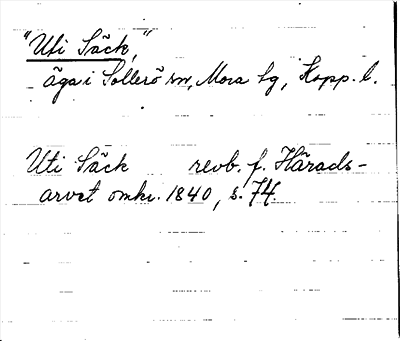 "Uti Säck,"
äga i Sollerö sn, Mora tg, Kopp. l.
Uti Säck revb. f. Härads-
arvet omkr. 1840, s. 74.